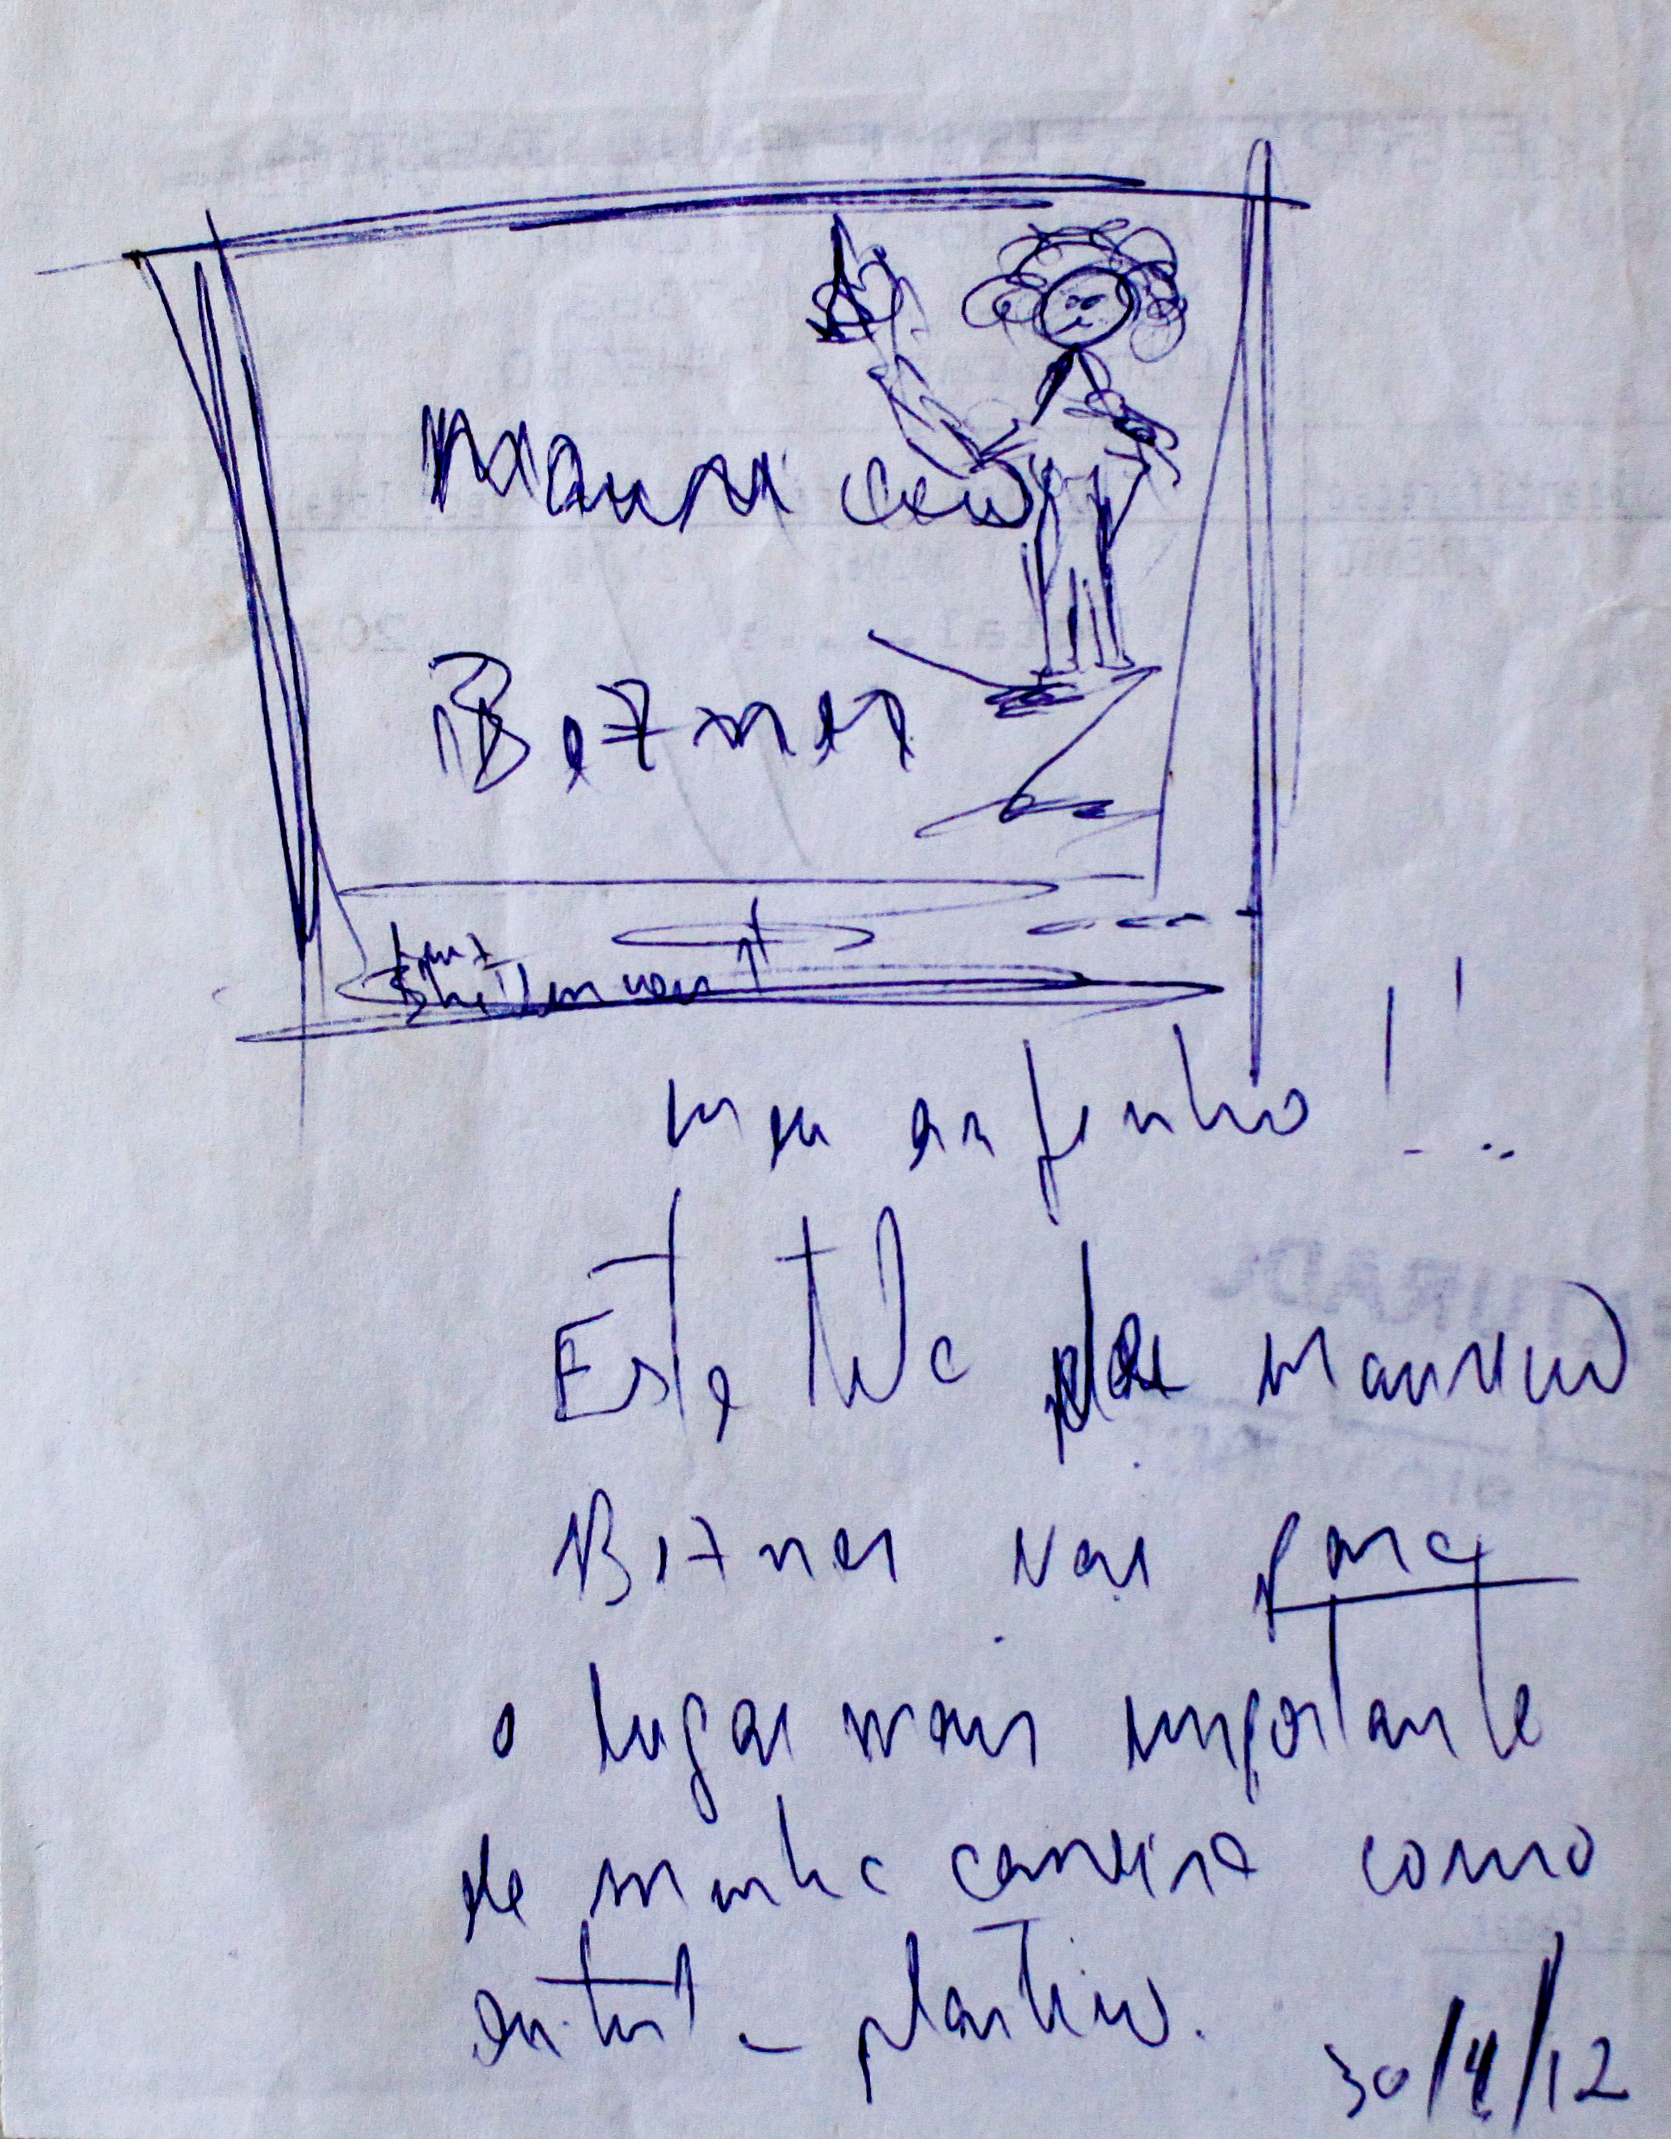 Mauricio
Bezner
meu anjinho!!..
Esta tela de Mauricio
Bezner vai para
o lugar mais importante
de minha carreira como
artista-plastico.
30/4/12